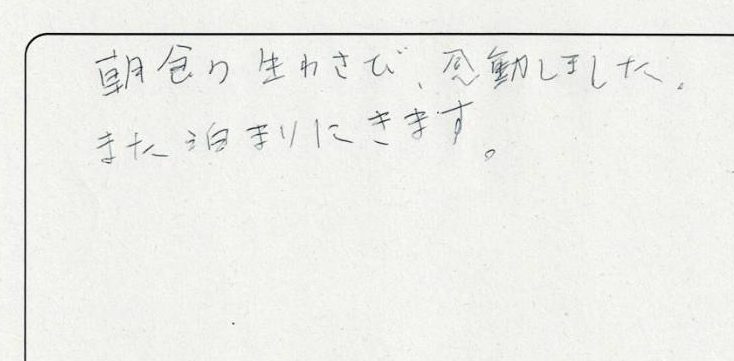 朝食の生わさび、感動しました。
また泊まりにきます。